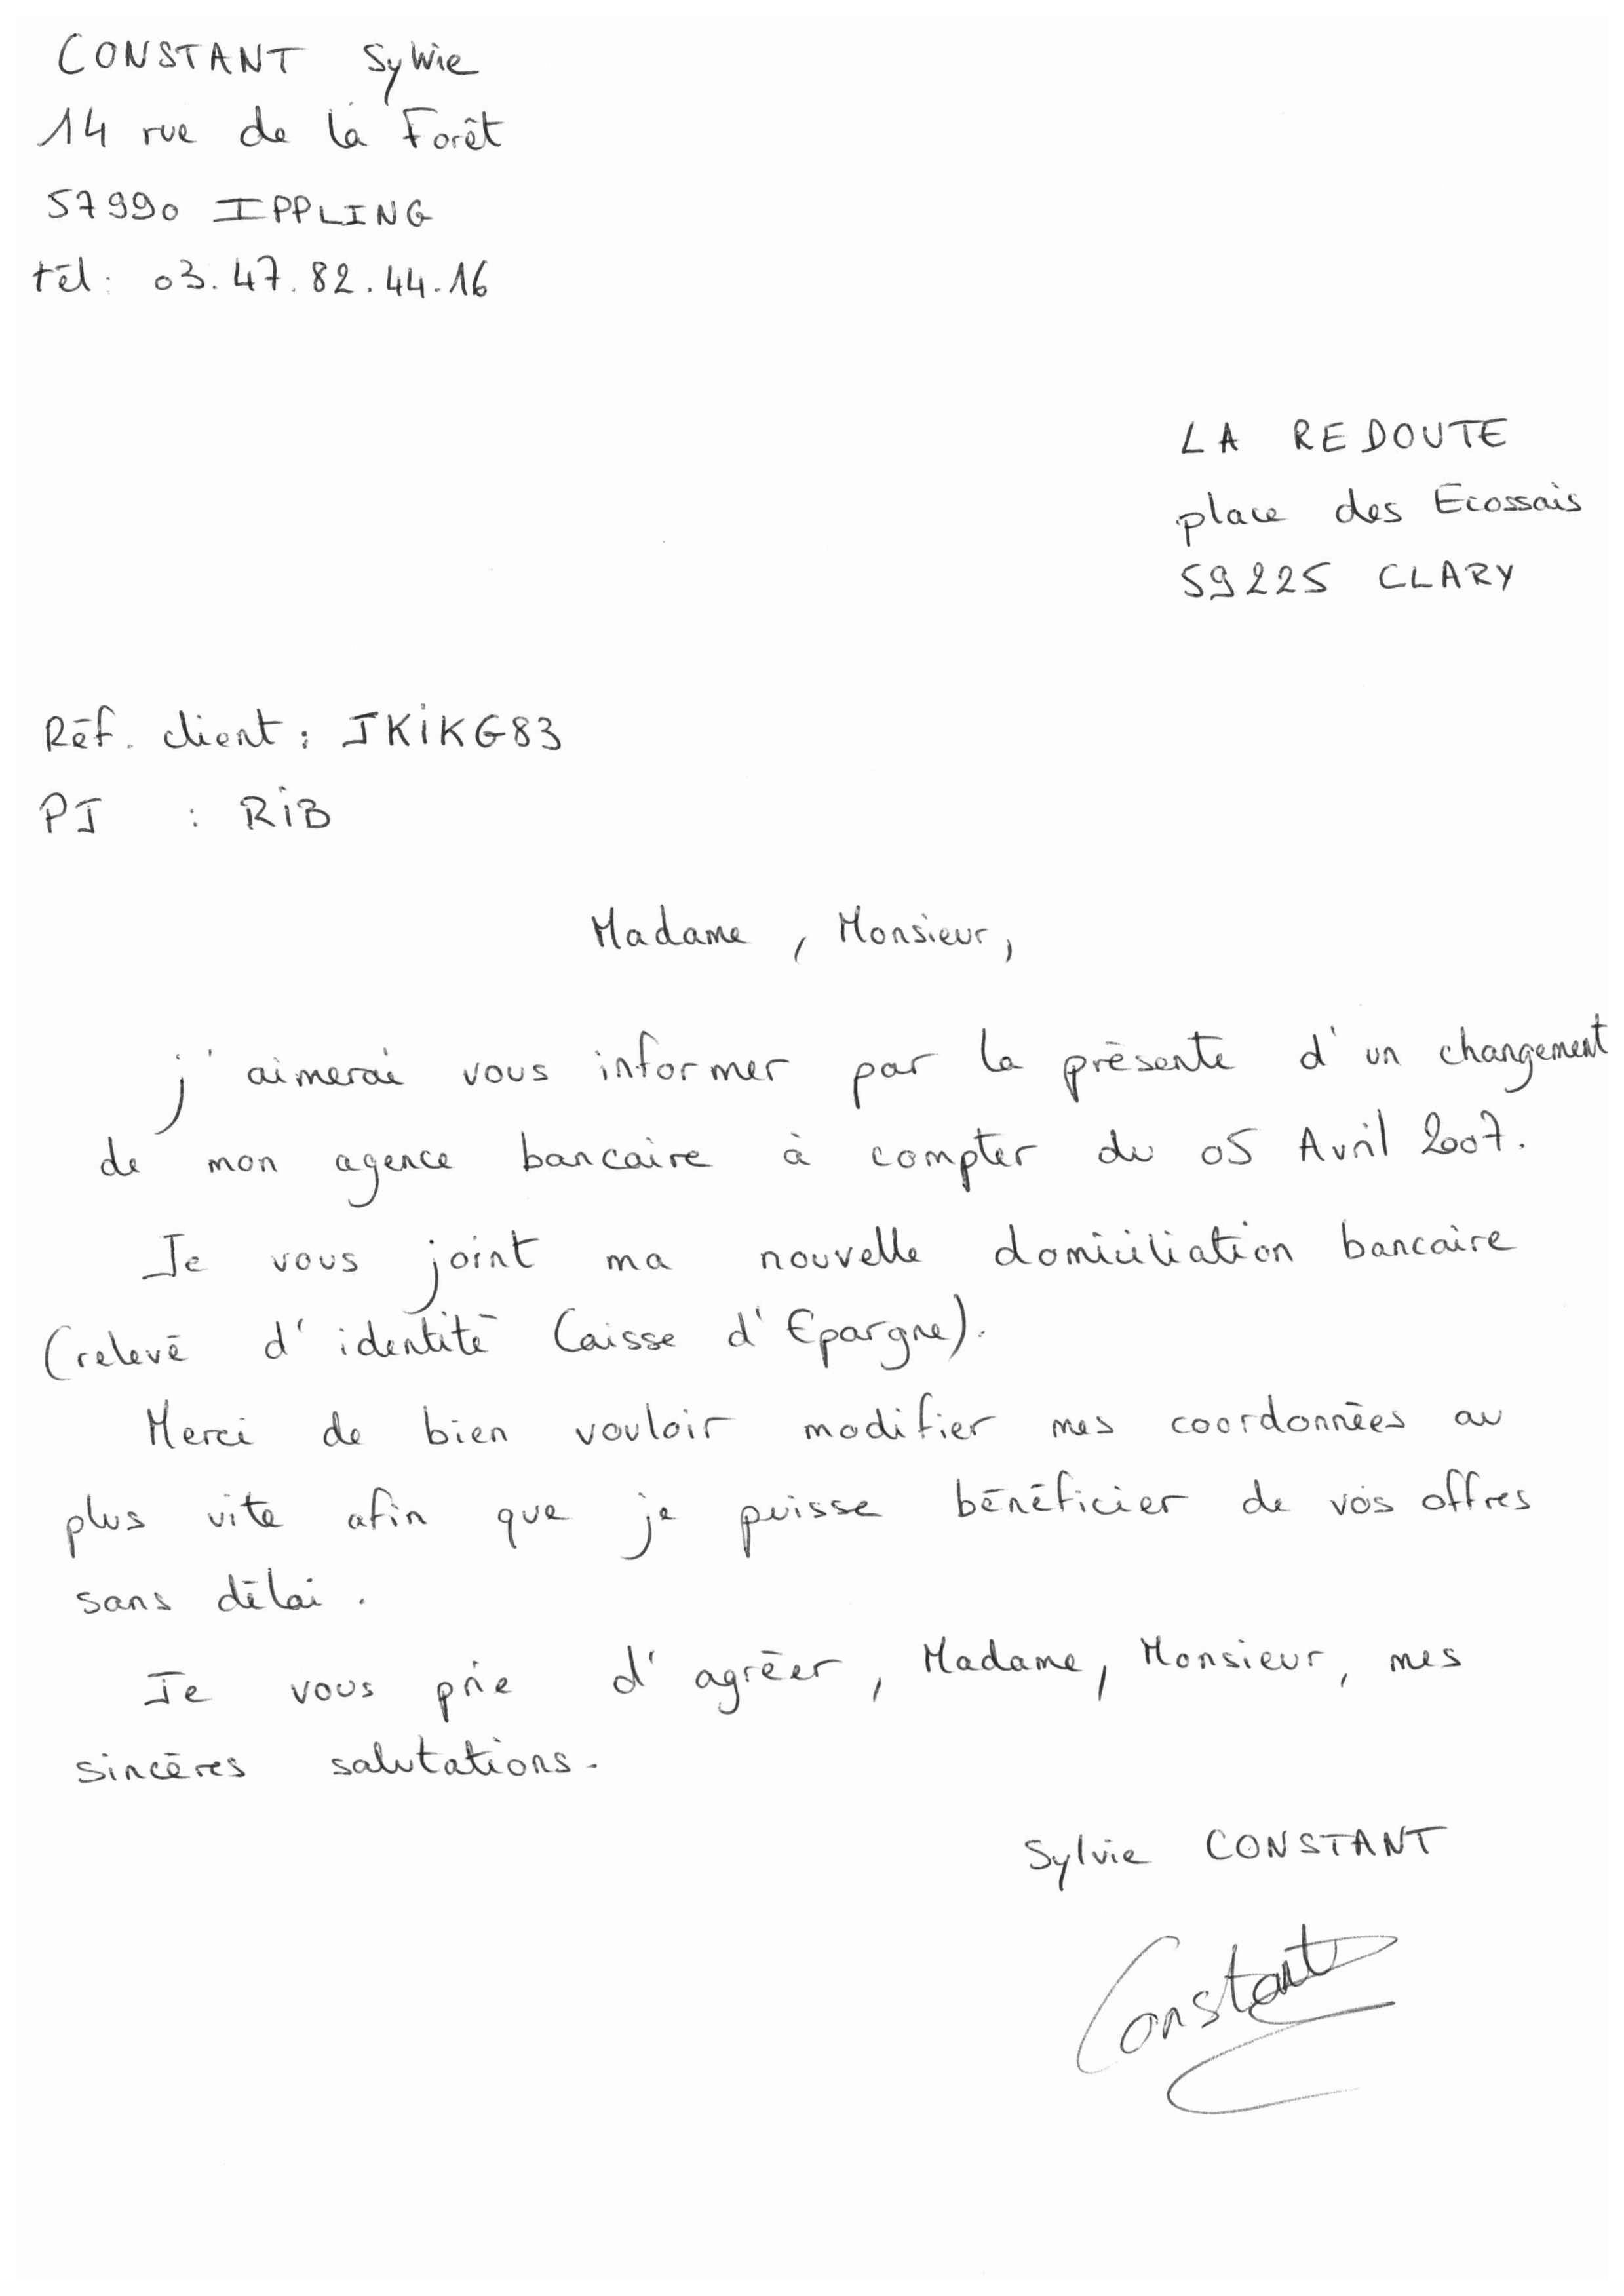 CONSTANT Sylvie
14 rue de la Forêt
57990 IPPLING
tél: 03.47.82.44.16
LA REDOUTE
place des Ecossais
59225 CLARY
Réf. client : JKiKG83
PJ : RiB
Madame, Monsieur,
j'aimerai vous informer par la présente d'un changement
de mon agence bancaire à compter du 05 Avril 2007.
Je vous joint ma nouvelle domiciliation bancaire
(relevé d'identité Caisse d'Epargne).
Merci de bien vouloir modifier mes coordonnées au
plus vite afin que je puisse bénéficier de vos offres
sans délai.
Je vous prie d'agréer, Madame, Monsieur, mes
sincères salutations.
Sylvie CONSTANT
Constant